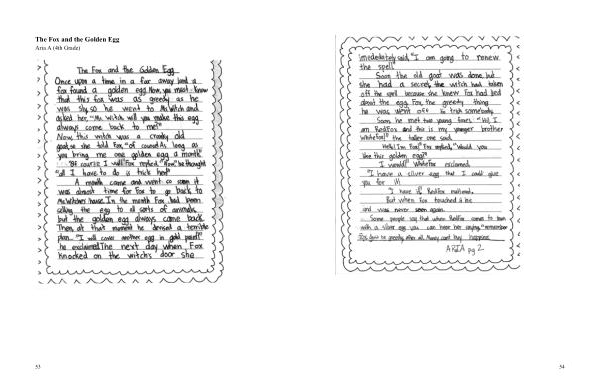 The Fox and the Golden Egg
Aria A (4th Grade)
The Fox and the Golden Egg
Once upon a time in a far away land a
fox found a golden egg. Now, you must know
that this fox was as greedy as he
was sly, so he went to Ms.Witch and
asked her, "Ms. witch will you make this egg
always come back to me?"
Now, this witch was a cranky old
goat, so she told Fox, "of course! As long as
you bring me one golden egg a month."
"Of course I will" Fox replied. "Now," he thought
"all I have to do is trick her!"
A month came and went so soon it
was almost time for Fox to go back to
Ms.Witches house. In the month Fox had been
selling the egg to all sorts of animals,
but the golden egg always came back.
Then, at that moment he devised a terrible
plan. "I will cover another egg in gold paint!"
he exclaimed. The next day when Fox
knocked on the witch's door she
imediately said, "I am going to renew
the spell"
Soon the old goat was done, but
she had a secret, the witch had taken
off the spell because she knew Fox had lied
about the egg. Fox, the greedy thing
he was went off to trick somebody.
Soon he met two young foxes. "Hi, I
am RedFox and this is my younger brother
WhiteFox!" the taller one said.
"Hello! I'm Fox!" Fox replied, "Would you
like this golden egg?"
"I would!" WhiteFox exclaimed.
"I have a silver egg that I could give
you for it!
"I have it, RedFox muttered.
But when Fox touched it he
and was never seen again.
Some people say that when RedFox comes to town
with a silver egg you can hear her saying, "remember
happens
ARIA pg 2
53
54